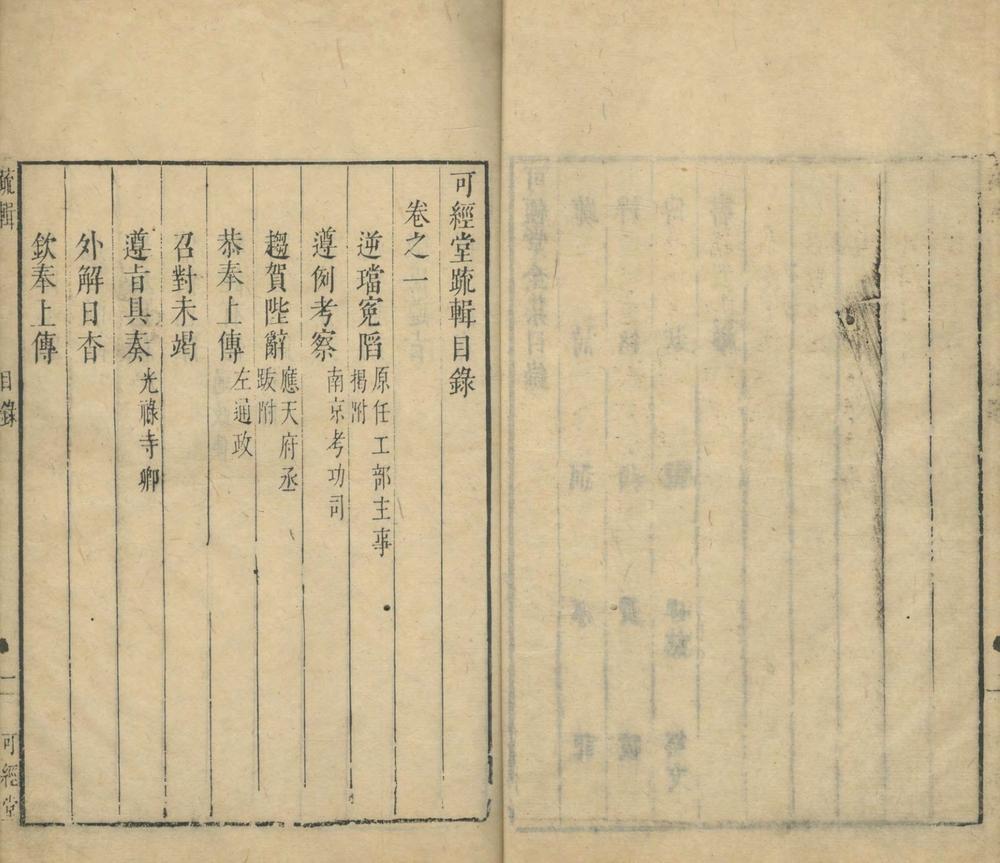 可經堂疏輯目錄
卷之一
逆璫寃陷 原任工部主事
揭附
遵例考察 南京考功司
趨賀陛辭 應天府丞
䟦附
恭奉上傳 左通政
召對未竭
遵旨具奏 光祿寺卿
外解日杳
欽奉上傳
疏輯
目錄
一
可經堂